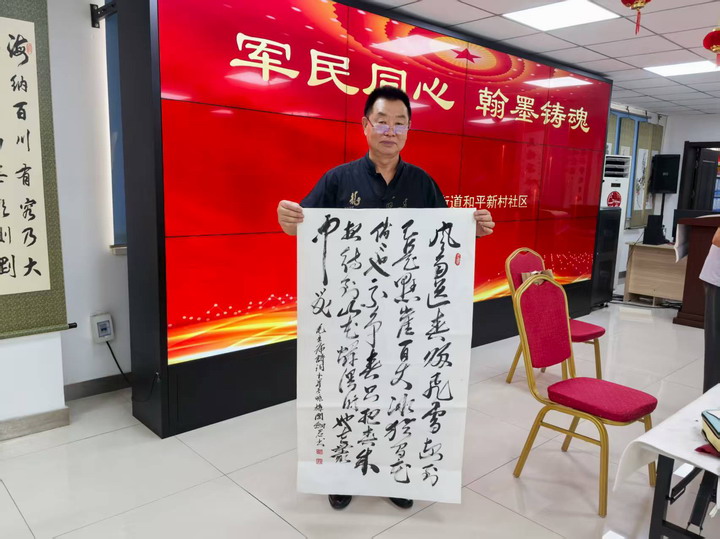 军民同心 翰墨铸魂
道和平新村社区
海纳百川有容乃大
无欲则刚
风雨送春归飞雪迎春到
已是悬崖百丈冰犹有花
俏也不争春只把春来
报待到山花烂漫时她在丛
中笑
毛主席诗词卜算子咏梅